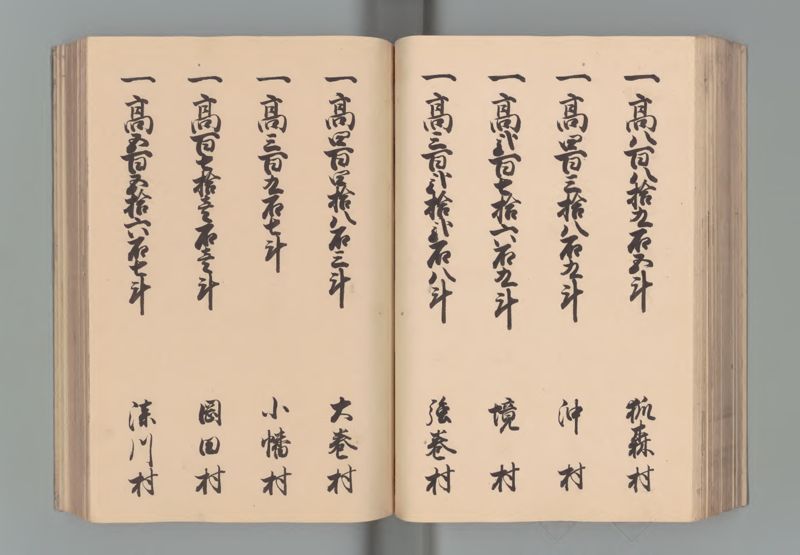 一高八百八拾九石五斗 狐森村
一高四百三拾八石九斗 沖村
一高弐百七拾六石九斗 境村
一高三百弐拾弐石八斗 強巻村
一高四百四拾八石三斗 大巻村
一高三百九石七斗 小幡村
一高百七拾壱石壱斗 岡田村
一高五百五拾六石七斗 湊川村